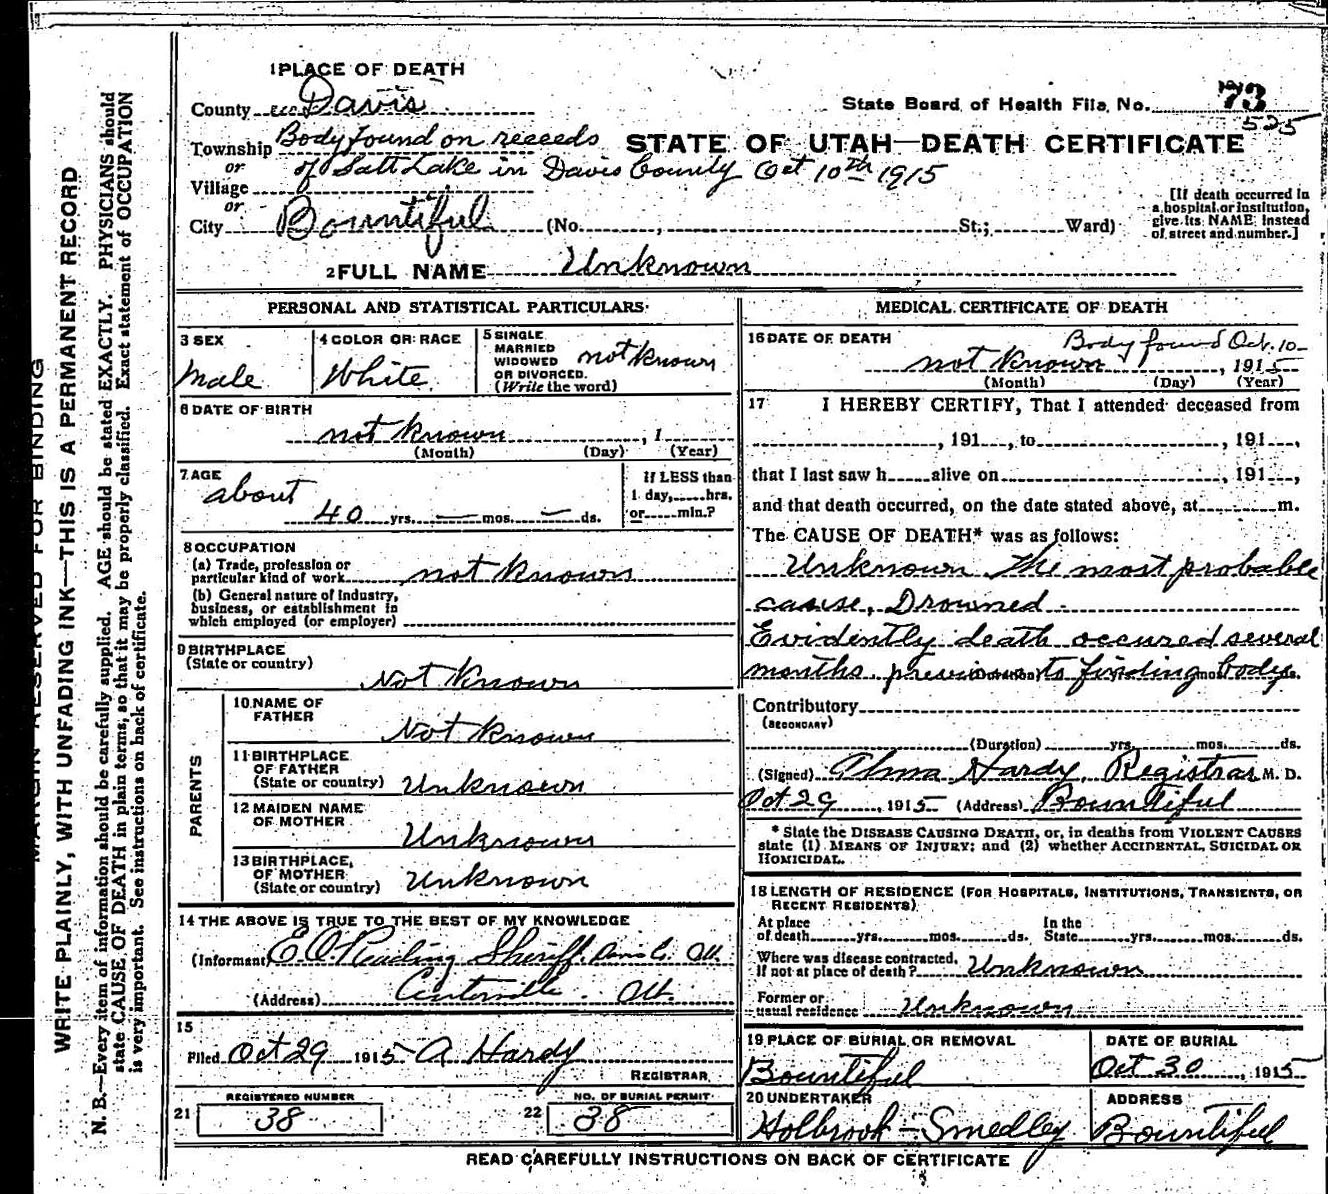 MARGIN RESERVED FOR BINDING
WRITE PLAINLY, WITH UNFADING INK—THIS IS A PERMANENT RECORD
N. B.—Every item of information should be carefully supplied. AGE should be stated EXACTLY. PHYSICIANS should
state CAUSE OF DEATH in plain terms, so that it may be properly classified. Exact statement of OCCUPATION
is very important. See instructions on back of certificate.
1 PLACE OF DEATH
County Davis
State Board of Health File No. 73
525
Township Body found on receeds
STATE OF UTAH—DEATH CERTIFICATE
or of Salt Lake in Davis County Oct 10th 1915
Village
or
City Bountiful (No. , St.; Ward)
[If death occurred in
a hospital or institution,
give its NAME instead
of street and number.]
2 FULL NAME Unknown
PERSONAL AND STATISTICAL PARTICULARS
3 SEX
Male
4 COLOR OR RACE
White
5 SINGLE
MARRIED
WIDOWED
OR DIVORCED.
(Write the word)
not known
6 DATE OF BIRTH
not known , 1
(Month) (Day) (Year)
7 AGE
about
40 yrs. — mos. — ds.
If LESS than
1 day, hrs.
or min.?
8 OCCUPATION
(a) Trade, profession or
particular kind of work not known
(b) General nature of Industry,
business, or establishment in
which employed (or employer)
9 BIRTHPLACE
(State or country)
Not Known
PARENTS
10 NAME OF
FATHER
Not Known
11 BIRTHPLACE
OF FATHER
(State or country) Unknown
12 MAIDEN NAME
OF MOTHER
Unknown
13 BIRTHPLACE,
OF MOTHER
(State or country) Unknown
14 THE ABOVE IS TRUE TO THE BEST OF MY KNOWLEDGE
(Informant) E.O. Reading Sheriff. Davis C. Ut.
(Address) Ut.
15
Filed Oct 29 1915 A Hardy
REGISTRAR
21 REGISTERED NUMBER
38
22 NO. OF BURIAL PERMIT
38
MEDICAL CERTIFICATE OF DEATH
16 DATE OF DEATH Body found Oct. 10
not Known , 1915
(Month) (Day) (Year)
17 I HEREBY CERTIFY, That I attended deceased from
, 191 , to , 191 ,
that I last saw h alive on , 191 ,
and that death occurred, on the date stated above, at m.
The CAUSE OF DEATH* was as follows:
Unknown The most probable
cause, Drowned
Evidently death occured several
months previous to finding body
Contributory
(SECONDARY)
(Duration) yrs. mos. ds.
(Signed) Alma Hardy, Registrar M. D.
Oct 29 , 1915 (Address) Bountiful
* State the DISEASE CAUSING DEATH, or, in deaths from VIOLENT CAUSES
state (1) MEANS OF INJURY; and (2) whether ACCIDENTAL, SUICIDAL OR
HOMICIDAL.
18 LENGTH OF RESIDENCE (FOR HOSPITALS, INSTITUTIONS, TRANSIENTS, OR
RECENT RESIDENTS)
At place In the
of death yrs. mos. ds. State yrs. mos. ds.
Where was disease contracted,
If not at place of death? Unknown
Former or
usual residence Unknown
19 PLACE OF BURIAL OR REMOVAL
Bountiful
DATE OF BURIAL
Oct 30 , 1915
20 UNDERTAKER
Holbrook-Smedley
ADDRESS
Bountiful
READ CAREFULLY INSTRUCTIONS ON BACK OF CERTIFICATE